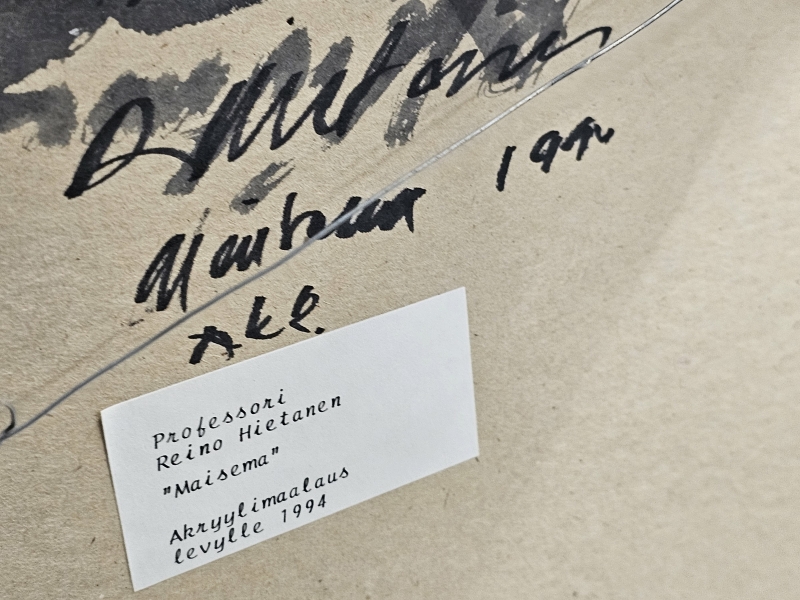 R Hietanen
1994
Maisema
Akr.
Professori
Reino Hietanen
"Maisema"
Akryylimaalaus
levylle 1994